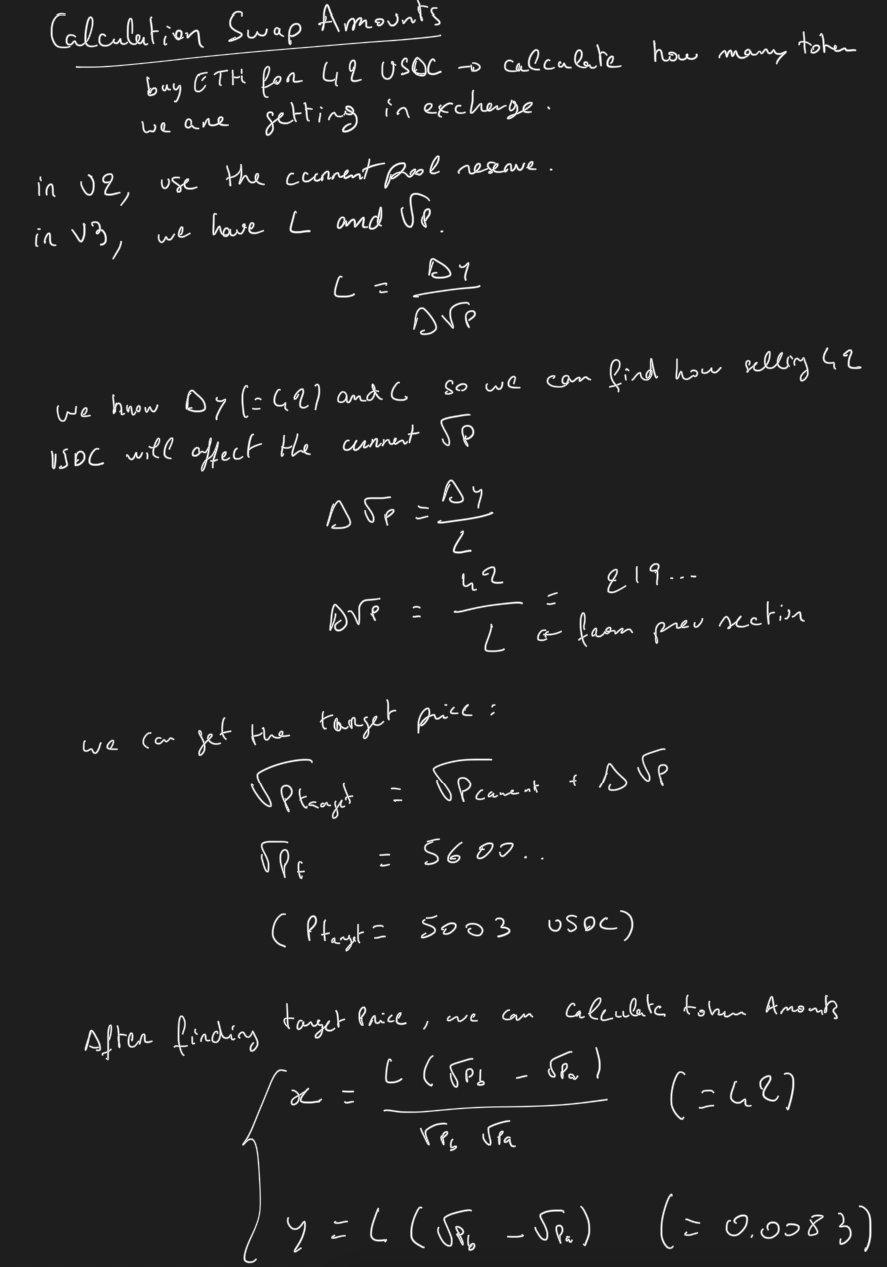 Calculation Swap Amounts
buy ETH for 42 USDC → calculate how many token
we are getting in exchange.
in V2, use the current pool reserve.
in V3, we have L and √P.
L = Δy / Δ√P
we know Δy (=42) and L so we can find how selling 42
USDC will affect the current √P
Δ√P = Δy / L
Δ√P = 42 / L = 219...
← from prev section
we can get the target price :
√Ptarget = √Pcurrent + Δ√P
√Pt = 5600..
(Ptarget = 5003 USDC)
After finding target Price, we can calculate token Amounts
x = L(√Pb - √Pa) / √Pb √Pa (=42)
y = L(√Pb - √Pa) (= 0.0083)